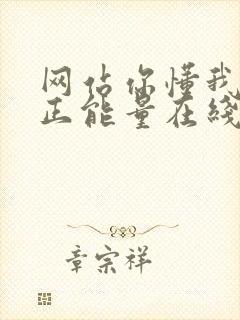 网站你懂我
正能量在线
章宗祥